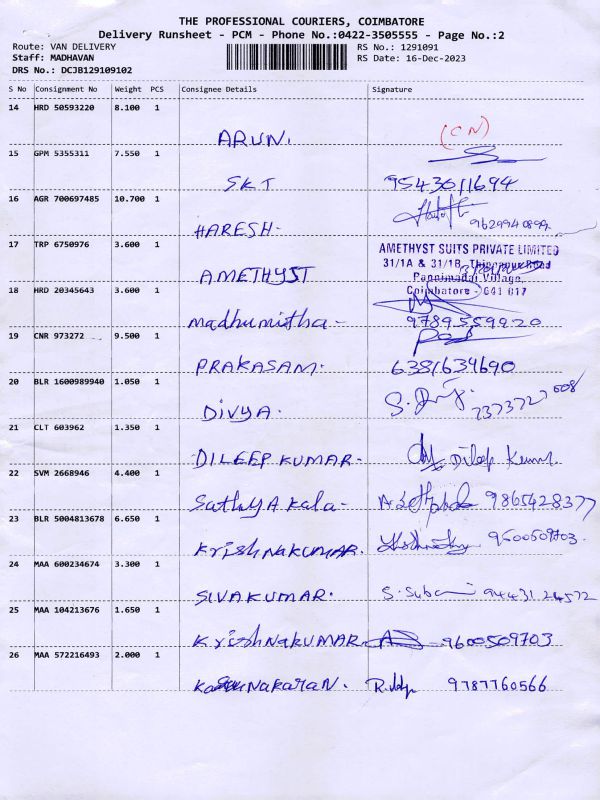 THE PROFESSIONAL COURIERS, COIMBATORE
Delivery Runsheet - PCM - Phone No.:0422-3505555 - Page No.:2
Route: VAN DELIVERY
Staff: MADHAVAN
DRS No.: DCJB129109102
RS No.: 1291091
RS Date: 16-Dec-2023
S No Consignment No Weight PCS Consignee Details Signature
14 HRD 50593220 8.100 1
ARUN. (CN)
15 GPM 5355311 7.550 1
SKT 9543011694
16 AGR 700697485 10.700 1
HARESH- 9629940894
17 TRP 6750976 3.600 1
AMETHYST
AMETHYST SUITS PRIVATE LIMITED
31/1A & 31/1B, Road
Village,
Coimbatore - 641 017
18 HRD 20345643 3.600 1
Madhumitha - 9789559920
19 CNR 973272 9.500 1
PRAKASAM. 6381634690
20 BLR 1600989940 1.050 1
DIVYA. 7373727608
21 CLT 603962 1.350 1
DILEEP KUMAR. Dileep Kumar
22 SVM 2668946 4.400 1
SathyAkala- 9865428377
23 BLR 5004813678 6.650 1
KrishNakUMAR. 9600509703.
24 MAA 600234674 3.300 1
SIVAKUMAR. 9443124572
25 MAA 104213676 1.650 1
KrishNakUMAR. 9600509703
26 MAA 572216493 2.000 1
9787760566